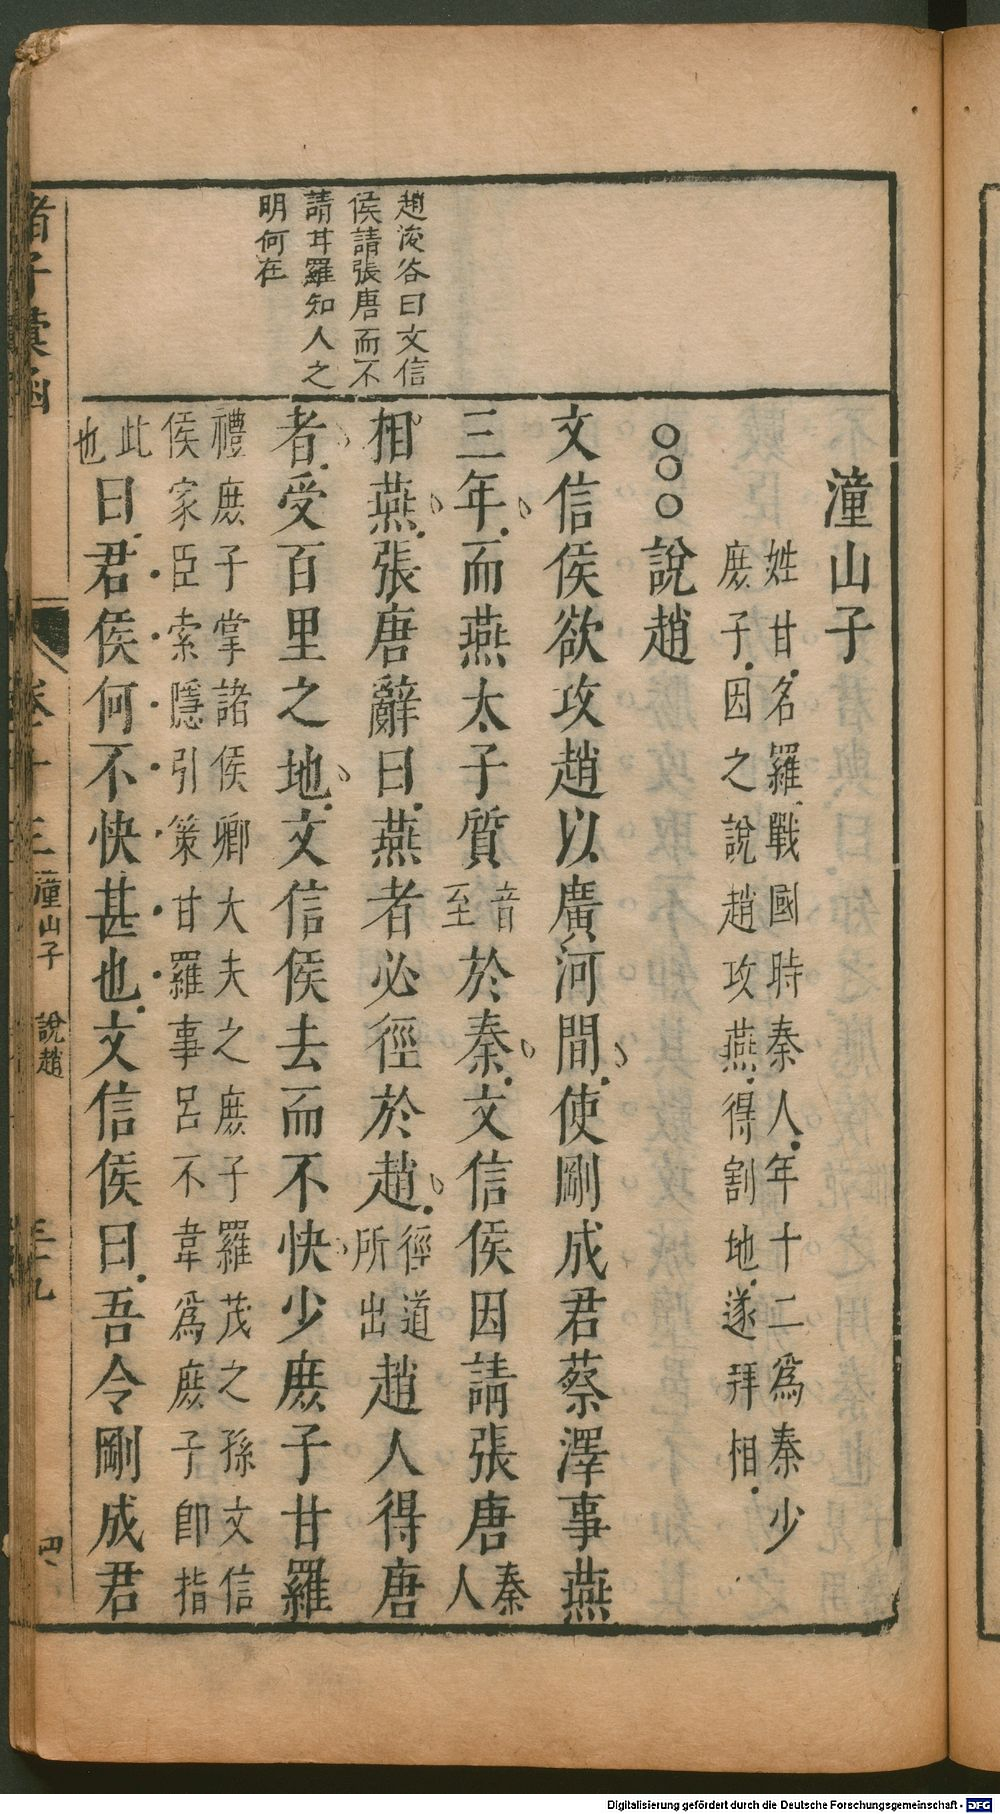 趙浚谷曰文信
侯請張唐而不
請甘羅知人之
明何在
潼山子
姓甘名羅戰國時秦人年十二爲秦少
庶子因之說趙攻燕得割地遂拜相
○○○說趙
文信侯欲攻趙以廣河間使剛成君蔡澤事燕
三年而燕太子質音至於秦文信侯因請張唐秦人
相燕張唐辭曰燕者必徑於趙徑道所出趙人得唐
者受百里之地文信侯去而不快少庶子甘羅
禮庶子掌諸侯卿大夫之庶子羅茂之孫文信
侯家臣索隱引策甘羅事呂不韋爲庶子卽指
此也曰君侯何不快甚也文信侯曰吾令剛成君
諸子彙函 卷十三 潼山子 說趙 三十九
Digitalisierung gefördert durch die Deutsche Forschungsgemeinschaft - DFG